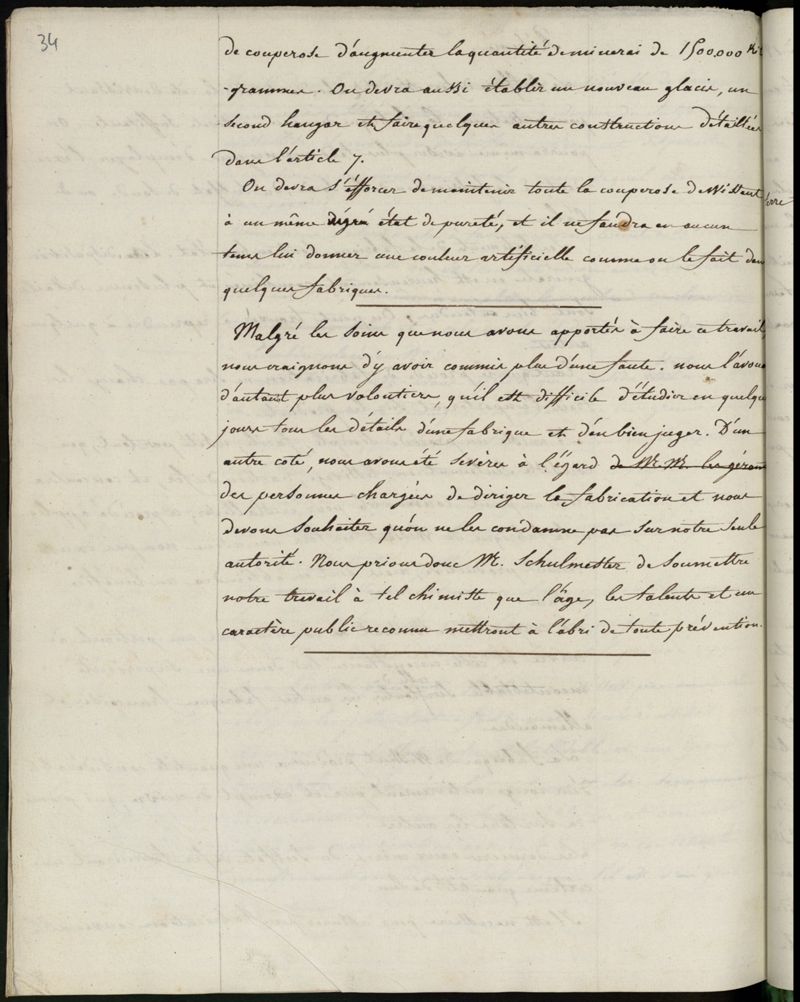 34
de couperose d'augmenter la quantité de minerai de 1500.000 Kil
-grammes. On devra aussi établir un nouveau glacis, un
second hangar et faire quelques autres constructions détaillées
dans l'article 7.
On devra s'éfforcer de maintenir toute la couperose de
à un même dégré état de pureté, et il ne faudra en aucun
tems lui donner une couleur artificielle comme on le fait dans
quelques fabriques.
Malgré les soins que nous avons apportés à faire ce travail,
nous craignons d'y avoir commis plus d'une faute. nous l'avouons
d'autant plus volontiers, qu'il est difficile d'étudier en quelques
jours tous les détails d'une fabrique et d'en bien juger. D'un
autre coté, nous avons été sévères à l'égard de M. M. les gérans
des personnes chargées de diriger la fabrication et nous
devons souhaiter qu'on ne les condamne pas sur notre seule
autorité. Nous prions donc M. Schulmester de soumettre
notre travail à tel chimiste que l'âge, les talents et un
caractère public reconnu mettront à l'abri de toute prévention.